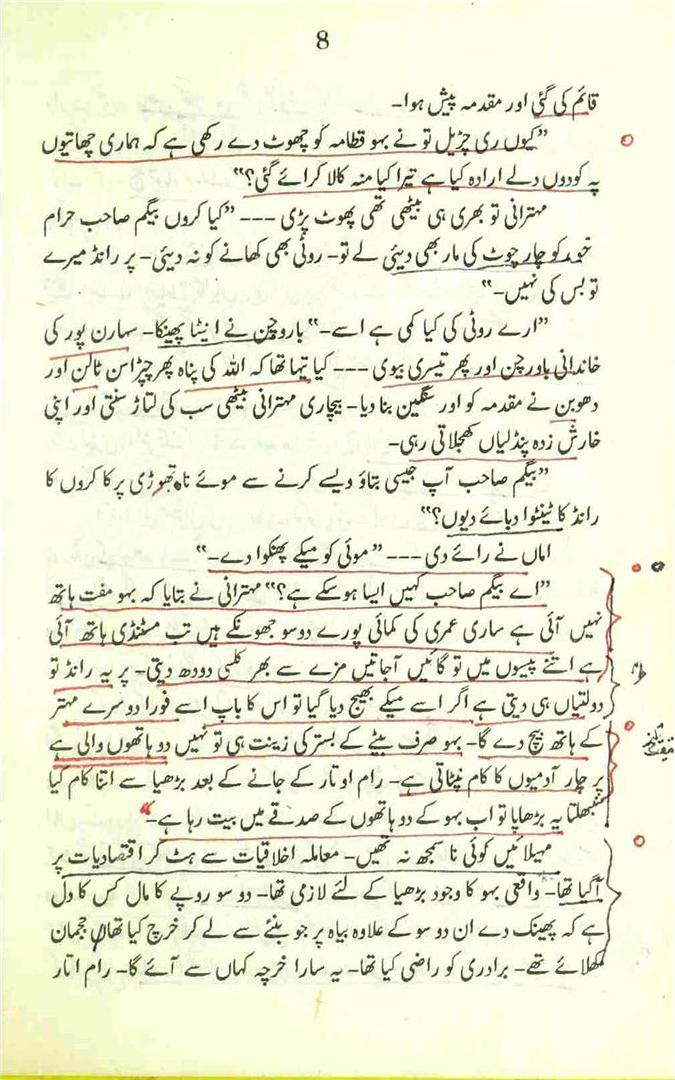 8
قائم کی گئی اور مقدمہ پیش ہوا۔
”کیوں ری چڑیل تو نے بہو قطامہ کو چھوٹ دے رکھی ہے کہ ہماری چھاتیوں
پہ کودوں دلے ارادہ کیا ہے تیرا کیا منہ کالا کرائے گئی؟“
مہترانی تو بھری ہی بیٹھی تھی پھوٹ پڑی --- ”کیا کروں بیگم صاحب حرام
خود کو چار چوٹ کی مار بھی دیئی لے تو۔ روٹی بھی کھانے کو نہ دیئی۔ پر رانڈ میرے
تو بس کی نہیں۔“
”ارے روٹی کی کیا کمی ہے اسے۔“ باروچن نے اینٹا پھینکا۔ سہارن پور کی
خاندانی باورچن اور پھر تیسری بیوی --- کیا تیہا تھا کہ اللہ کی پناہ پھر چپڑاسن ٹالن اور
دھوبن نے مقدمہ کو اور سنگین بنا دیا۔ بیچاری مہترانی بیٹھی سب کی لتاڑ سنتی اور اپنی
خارش زدہ پنڈلیاں کھجلاتی رہی۔
”بیگم صاحب آپ جیسی بتاؤ ویسے کرنے سے موئے نا تھوڑی پر کا کروں کا
رانڈ کا ٹینٹوا دبائے دیوں؟“
اماں نے رائے دی --- ”موئی کو میکے پھنکوا دے۔“
”اے بیگم صاحب کہیں ایسا ہو سکے ہے؟“ مہترانی نے بتایا کہ بہو مفت ہاتھ
نہیں آئی ہے ساری عمری کی کمائی پورے دو سو جھونکے ہیں تب مسٹنڈی ہاتھ آئی
ہے اتنے پیسوں میں تو گائیں آجاتیں مزے سے بھر کلسی دودھ دیتی۔ پر یہ رانڈ تو
دولتیاں ہی دیتی ہے اگر اسے میکے بھیج دیا گیا تو اس کا باپ اسے فورا دوسرے مہتر
کے ہاتھ بیچ دے گا۔ بہو صرف بیٹے کے بستر کی زینت ہی تو نہیں دو ہاتھوں والی ہے
پر چار آدمیوں کا کام نپٹاتی ہے۔ رام اوتار کے جانے کے بعد بڑھیا سے اتنا کام کیا
سنبھلتا یہ بڑھاپا تو اب بہو کے دو ہاتھوں کے صدقے میں بیت رہا ہے۔“
مہیلائیں کوئی نا سمجھ نہ تھیں۔ معاملہ اخلاقیات سے ہٹ کر اقتصادیات پر
آگیا تھا۔ واقعی بہو کا وجود بڑھیا کے لئے لازمی تھا۔ دو سو روپے کا مال کس کا دل
ہے کہ پھینک دے ان دو سو کے علاوہ بیاہ پر جو بنئے سے لے کر خرچ کیا تھا ججمان
کھلائے تھے۔ برادری کو راضی کیا تھا۔ یہ سارا خرچہ کہاں سے آئے گا۔ رام اتار